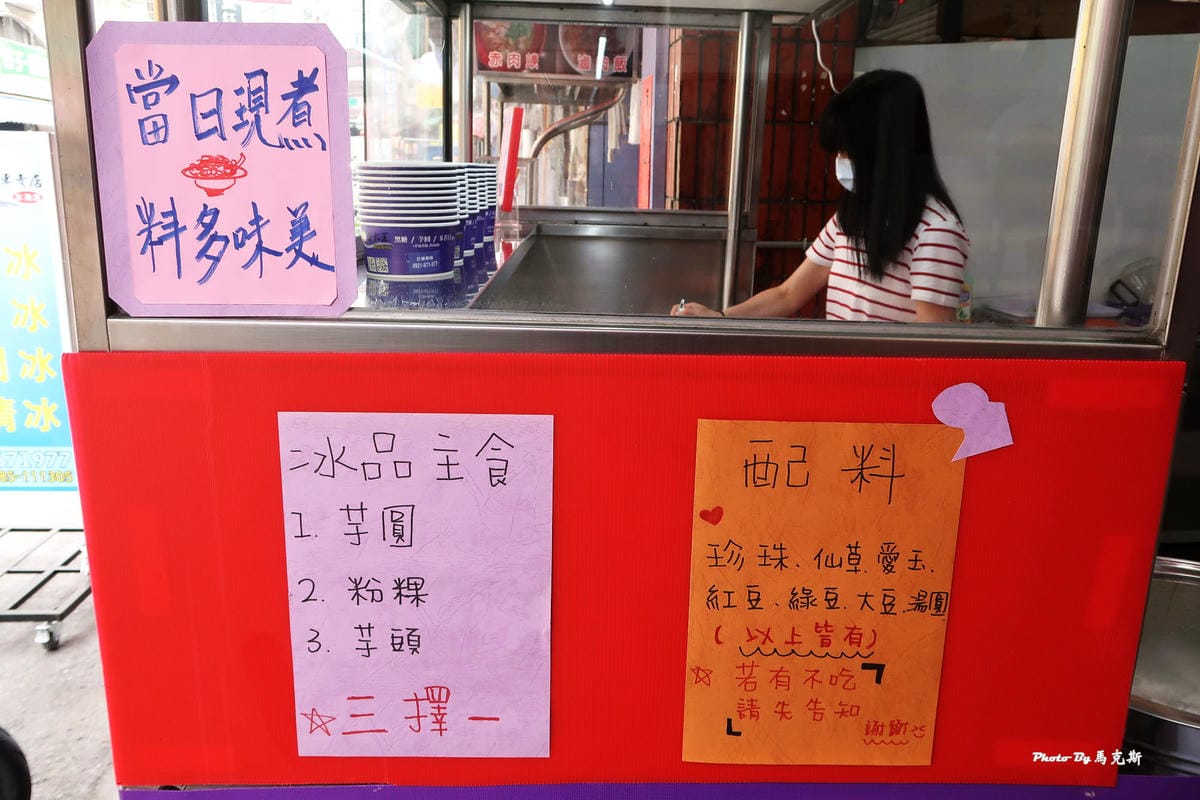 當日現煮
料多味美
赤肉焿 滷肉飯
黑糖 / 芋圓 /
冰
冰
冰
冰
71977
85-111305
冰品主食
1. 芋圓
2. 粉粿
3. 芋頭
☆三擇一
配料
珍珠、仙草、愛玉、
紅豆、綠豆、大豆、湯圓
(以上皆有)
☆若有不吃
請先告知
謝謝
Photo By 馬克斯